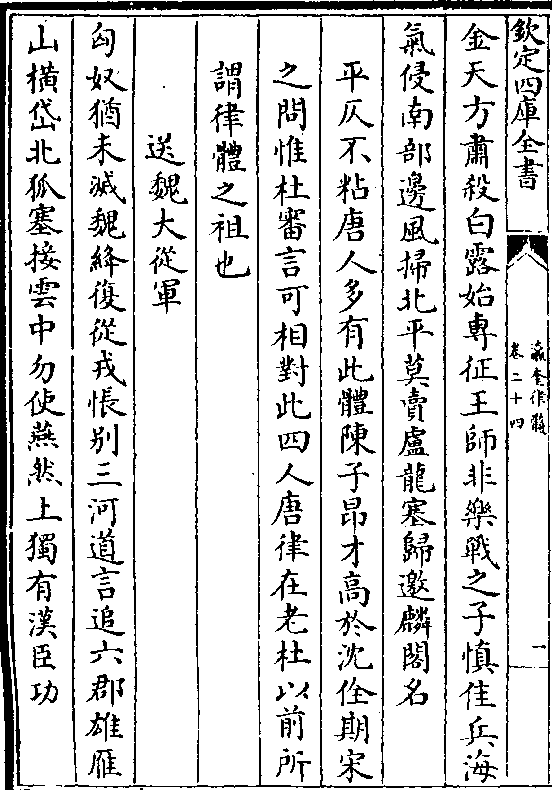 欽定四庫全書
瀛奎律髓
卷二十四
一
金天方肅殺白露始專征王師非樂戰之子慎佳兵海
氣侵南部邊風掃北平莫賣盧龍塞歸邀麟閣名
平仄不粘唐人多有此體陳子昂才高於沈佺期宋
之問惟杜審言可相對此四人唐律在老杜以前所
謂律體之祖也
送魏大從軍
匈奴猶未滅魏絳復從戎悵别三河道言追六郡雄雁
山橫岱北狐塞接雲中勿使燕然上獨有漢臣功